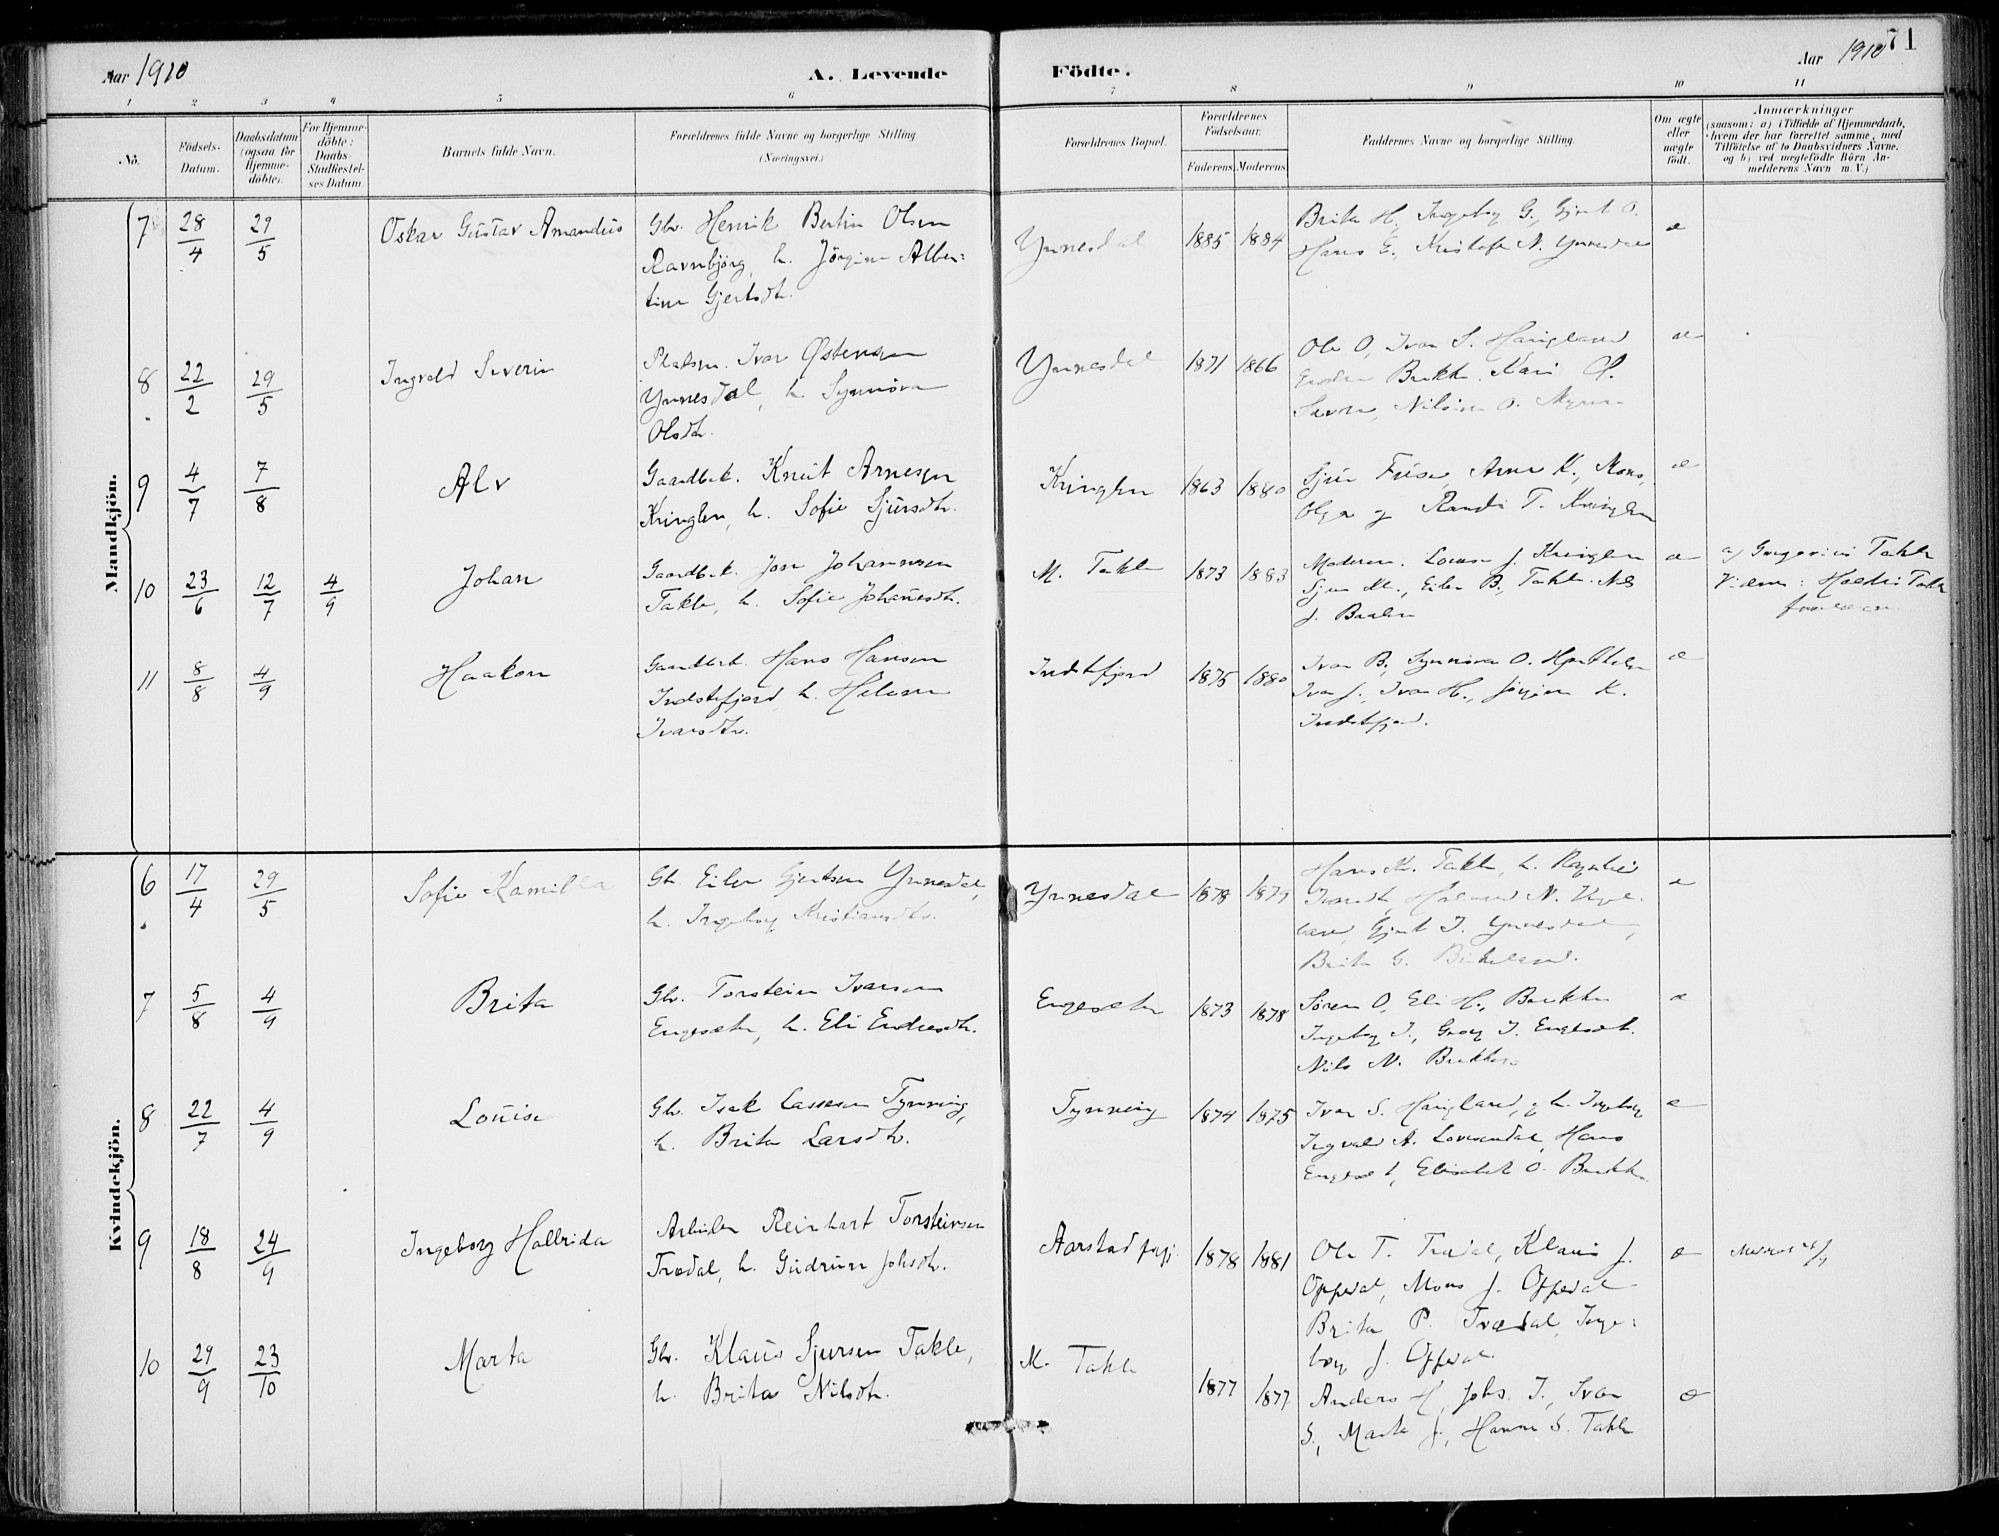 Aar 1910
A. Levende
Födte.
Aar 1910
71
1 2 3 4 5 6 7 8 9 10 11
No.
Födsels-
Datum.
Daabsdatum
(ogsaa for
Hjemme-
döbte).
For Hjemme-
döbte:
Daabs-
Stadfæstel-
ses Datum.
Barnets fulde Navn.
Forældrenes fulde Navne og borgerlige Stilling
(Næringsvei.)
Forældrenes Bopæl.
Forældrenes
Födselsaar.
Faderens. Moderens.
Faddernes Navne og borgerlige Stilling.
Om ægte
eller
uægte
födt.
Anmærkninger
(saasom: a) i Tilfælde af Hjemmedaab,
hvem der har forrettet samme, med
Tilföielse af to Daabsvidners Navne,
og b) ved uægtefödte Börn An-
melderens Navn m. V.)
Mandkjön.
7 28/4 29/5 Oskar Gustav Amandus
Gbr. Henrik Bertin Olsen
Ravnbjörg, h. Jörgine Alber-
tine Gjertsdtr.
Ynnesdal 1885 1884
Brita H., Ingeborg G., Gjert O.
Hans E., Kristofer N. Ynnesdal
æ
8 22/2 29/5 Ingvald Severin
Pladsm. Ivar Østensen
Ynnesdal, h. Synnöva
Olsdtr.
Ynnesdal 1871 1866
Ole O, Ivar S. Haugland
Brekke. Kari Ø.
Nilsine O.
æ
9 4/7 7/8 Alv
Gaardbr. Knut Arnesen
Kringlen, h. Sofie Sjursdtr.
Kringlen 1863 1880
Sjur Arne K., Mons,
Olga og Randi T. Kringlen
æ
10 23/6 12/7 4/9 Johan
Gaardbr. Jon Johannesen
Takle, h. Sofie Johannesdtr.
M. Takle 1873 1883
Moderen. J. Kringlen
Sjur M., Eiler B. Takle. Nils
J.
æ
a) Gregorius Takle
Vidner: Takle
11 8/8 4/9 Haakon
Gaardbr. Hans Hansen
Indrefjord h. Helene
Ivarsdtr.
Indrefjord 1875 1880
Ivar B., Synnöva O.
Ivar J., Ivar H., Jörgine K.
Indrefjord.
æ
Kvindekjön.
6 17/4 29/5 Sofie Kamilla
Gb. Eiler Gjertsen Ynnesdal,
h. Ingeborg Kristiansdtr.
Ynnesdal 1878 1879
Hans M. Takle, h.
N.
Gjert I. Ynnesdal,
Brita G. Birkeland.
æ
7 5/8 4/9 Brita
Gbr. Torstein Ivarsen
Engesæter, h. Eli Endresdtr.
Engesæter 1873 1878
Søren O, Eli H., Brekke
Ingeborg I., I. Engesæt.
Nils N. Brekke
æ
8 22/7 4/9 Louise
Gbr. Isak Lassesen Tynning,
h. Brita Larsdtr.
Tynning 1874 1875
Ivar S. Haugland, og h. Ingeborg
Ingvald A. Hans
Engesæt, Elisabet O. Brekke
æ
9 18/8 24/9 Ingeborg Halbrida
Arbeider Reinhart Torsteinsen
Trædal, h. Gudrun Johsdtr.
Aarstad 1878 1881
Ole T. Trædal, Klaus J.
Oppedal, Mons J. Oppedal
Brita P. Trædal, Inge-
borg J. Oppedal
æ
10 29/9 23/10 Marta
Gbr. Klaus Sjursen Takle,
h. Brita Nilsdtr.
M. Takle 1877 1877
Anders H, Johs. I., Ivar
S., Marta J., Hanna S. Takle
æ